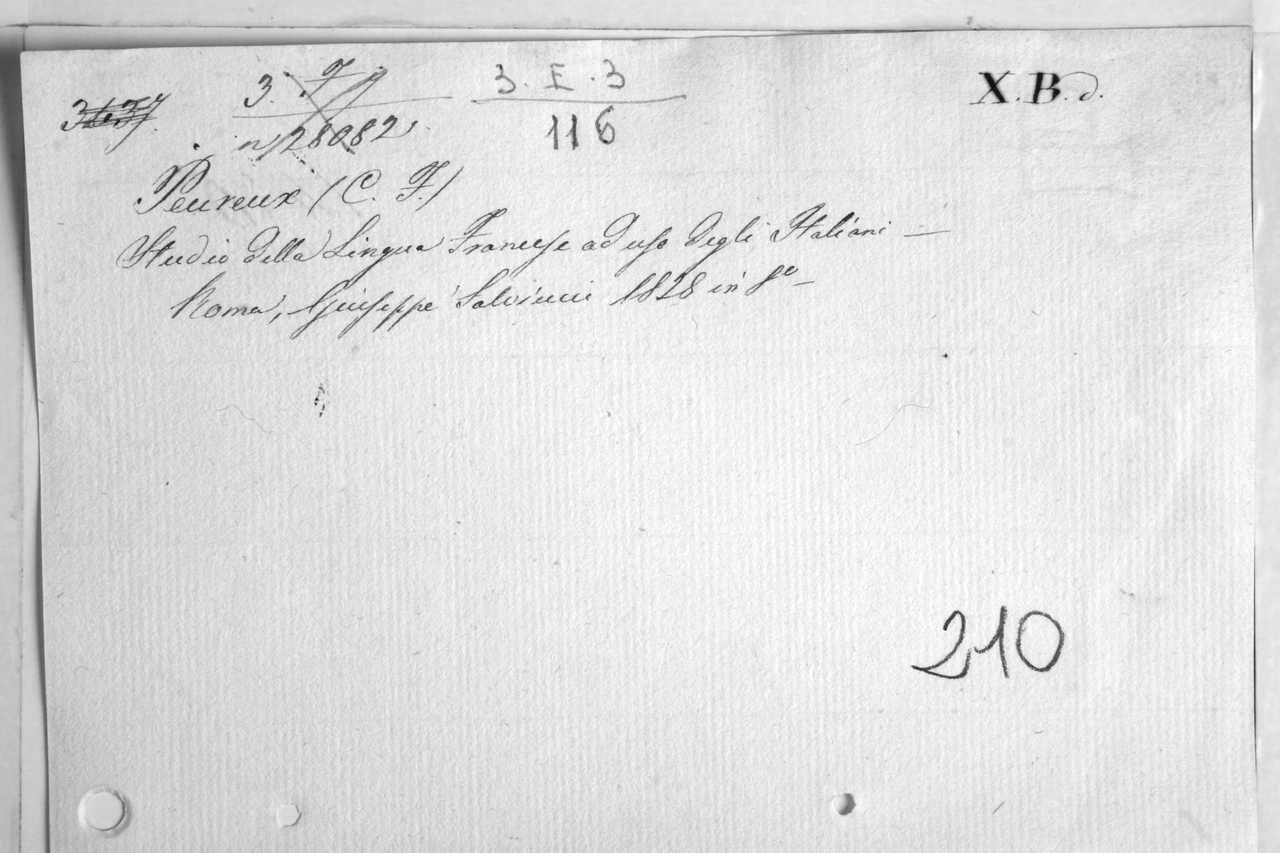 3. F 7
n 28082
3. E. 3
116
X. B. d.
Peureux (C. F.)
Studio della Lingua Francese ad uso degli Italiani —
Roma, Giuseppe Salviucci 1828 in 8º —
210